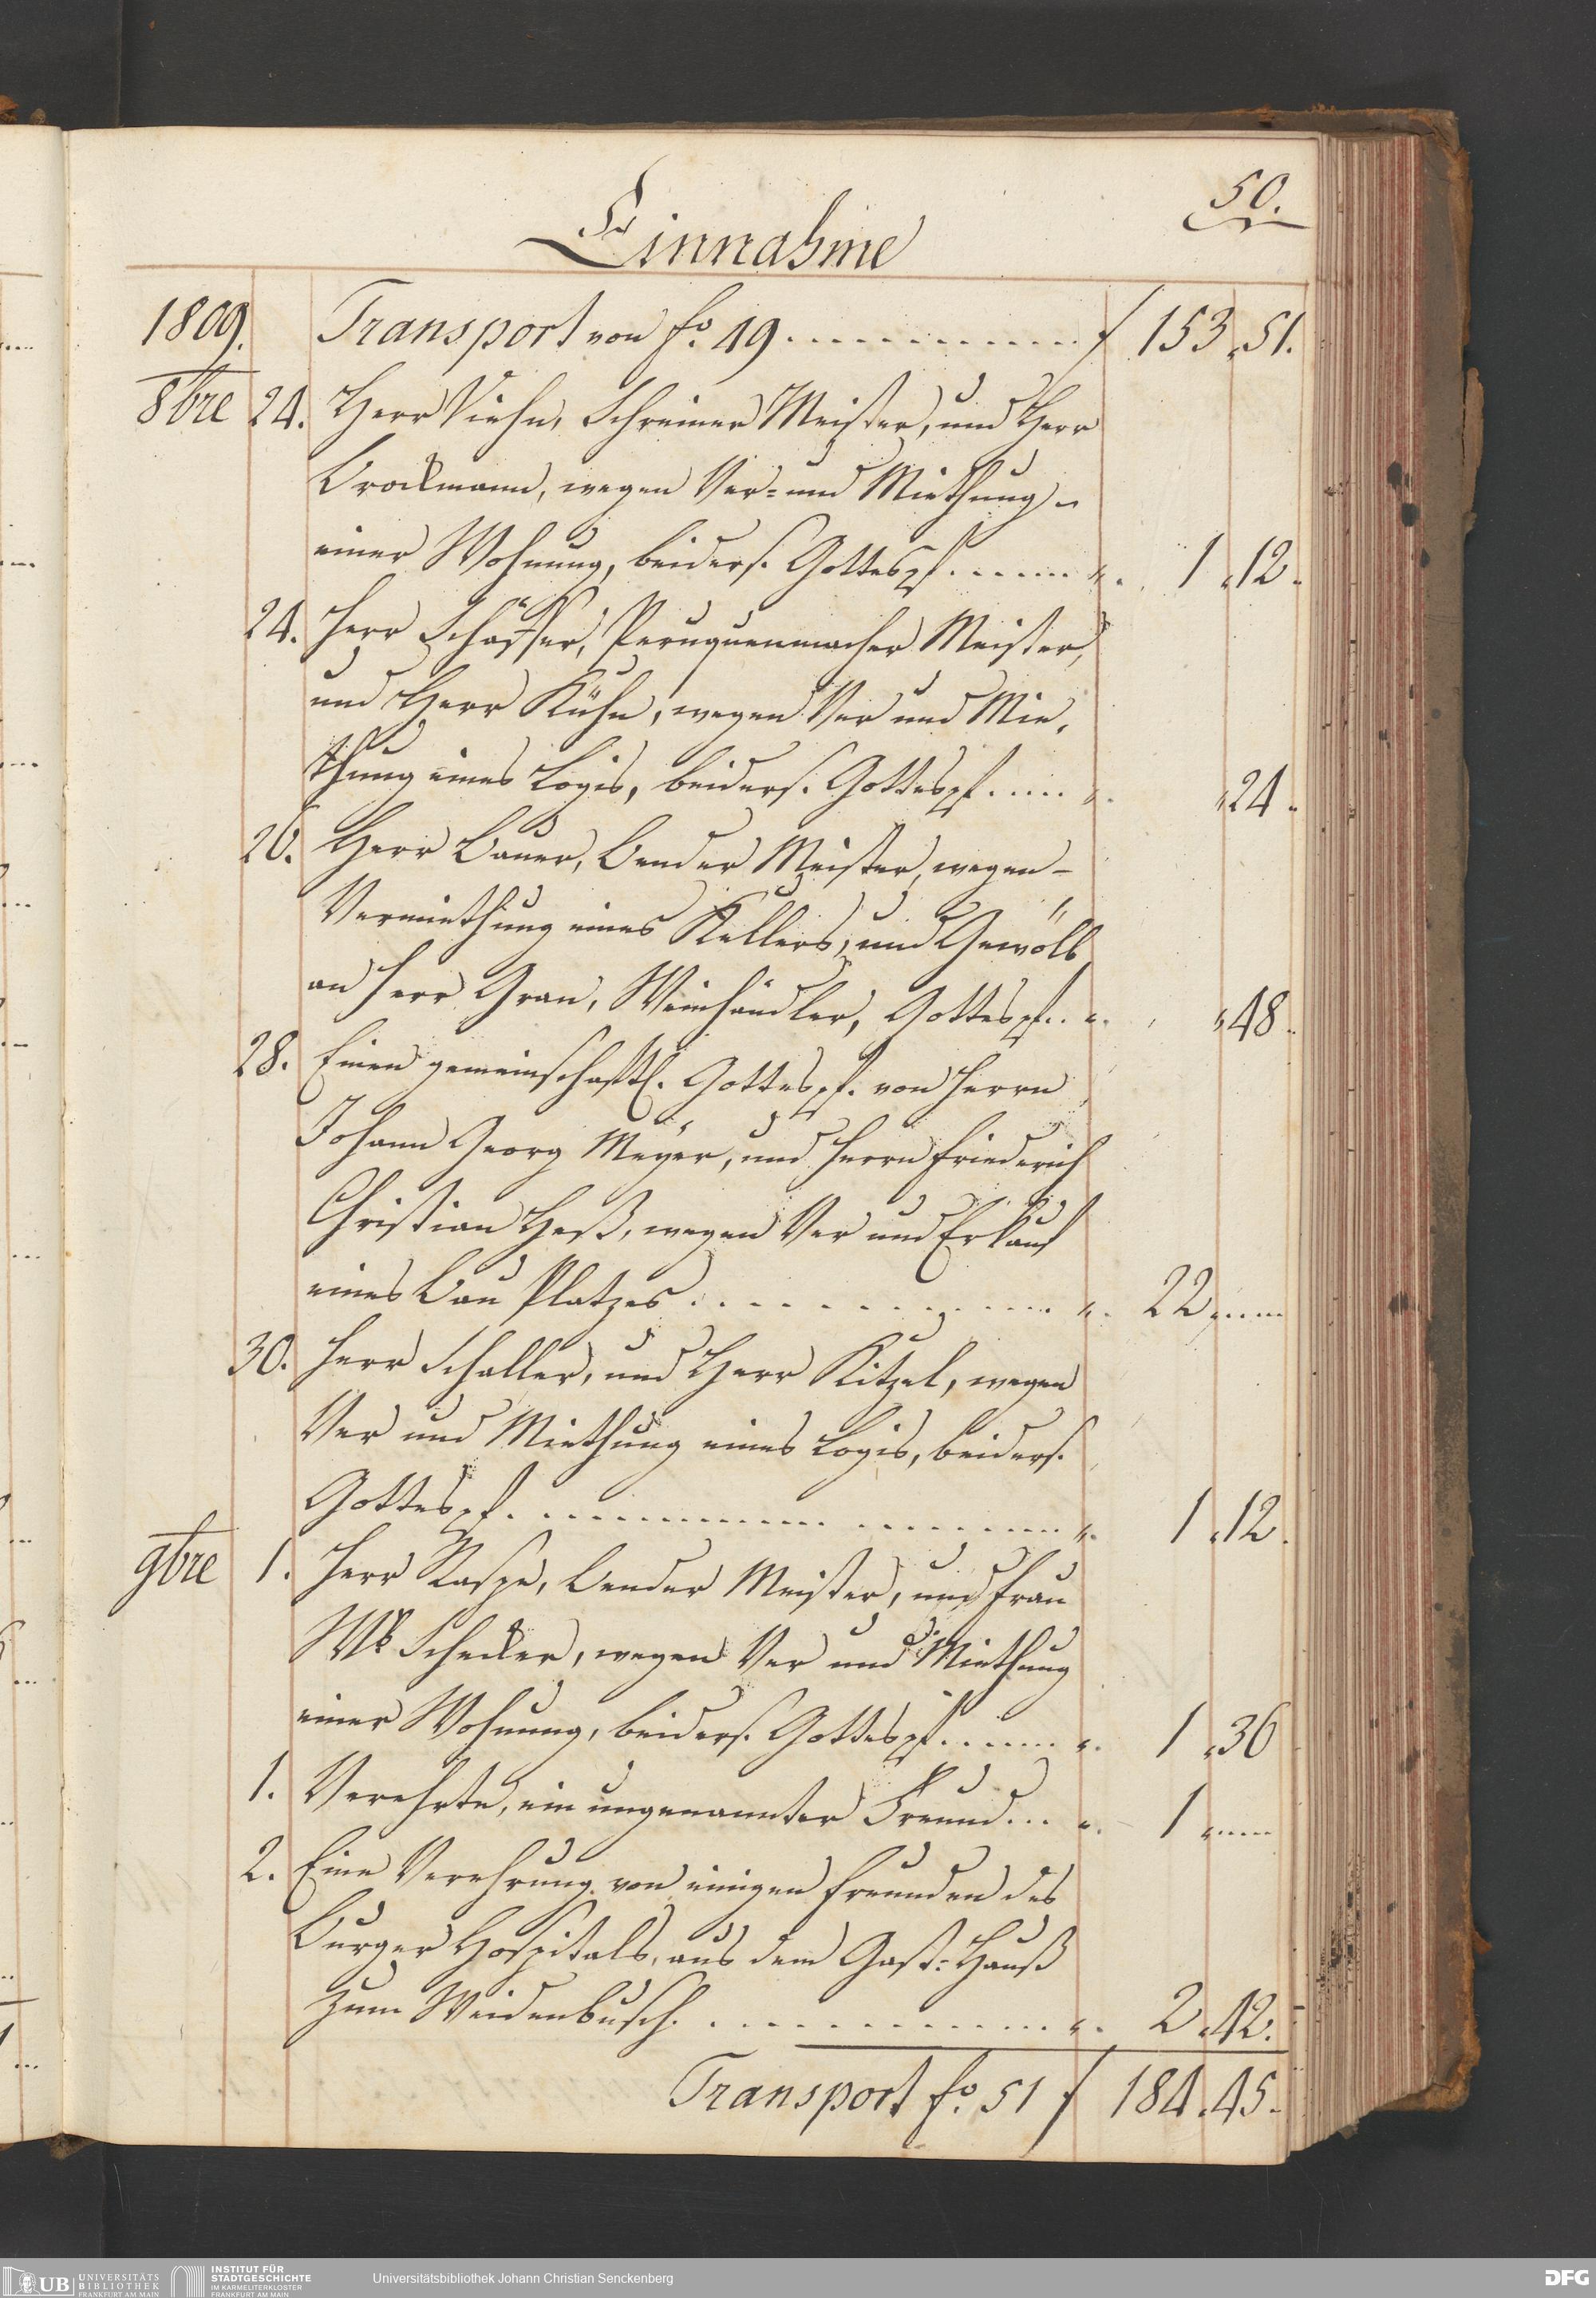 50.
Einnahme
1809. Transport von fo. 49 . . . . . . . . . . . . . f 153 „ 51.
8bre 24. Herr Viehn, Schreiner Meister, und Herr
Brockmann, wegen Ver= und Miethung
einer Wohnung, beiders. Gottespf. . . . . . . „ 1 „ 12.
24. Herr Schäffer, Peruquenmacher Meister,
und Herr Kühn, wegen Ver und Mie,
thung eines Logis, beiders. Gottespf. . . . . „ „ 24.
26. Herr Bauer, Bender Meister, wegen
Vermiethung eines Kellers, und Gewölb
an Herr Grau, Weinhändler, Gottespf. . „ „ 48.
28. Einen gemeinschaftl. Gottespf. von Herrn
Johann Georg Meyer, und Herrn Friederich
Christian Heß, wegen Ver und Erkauf
eines Bau Platzes . . . . . . . . . . . . . „ 22 „ . . . .
30. Herr Schaller, und Herr Kitzel, wegen
Ver und Miethung eines Logis, beiders.
Gottespf. . . . . . . . . . . . . . . . . . . „ 1 „ 12.
9bre 1. Herr Raspe, Bender Meister, und Frau
Schecker, wegen Ver und Miethung
einer Wohnung, beiders. Gottespf. . . . . . . „ 1 „ 36
1. Verehrte, ein ungenannter Freund . . . „ 1 „ . . . .
2. Eine Verehrung von einigen Freunden des
Burger Hospitals, aus dem Gast=Hauß
zum Weidenbusch. . . . . . . . . . . . . . „ 2 „ 42.
Transport fo. 51 f 184 „ 45.
UB UNIVERSITÄTS
BIBLIOTHEK
FRANKFURT AM MAIN
INSTITUT FÜR
STADTGESCHICHTE
IM KARMELITERKLOSTER
FRANKFURT AM MAIN
Universitätsbibliothek Johann Christian Senckenberg
DFG